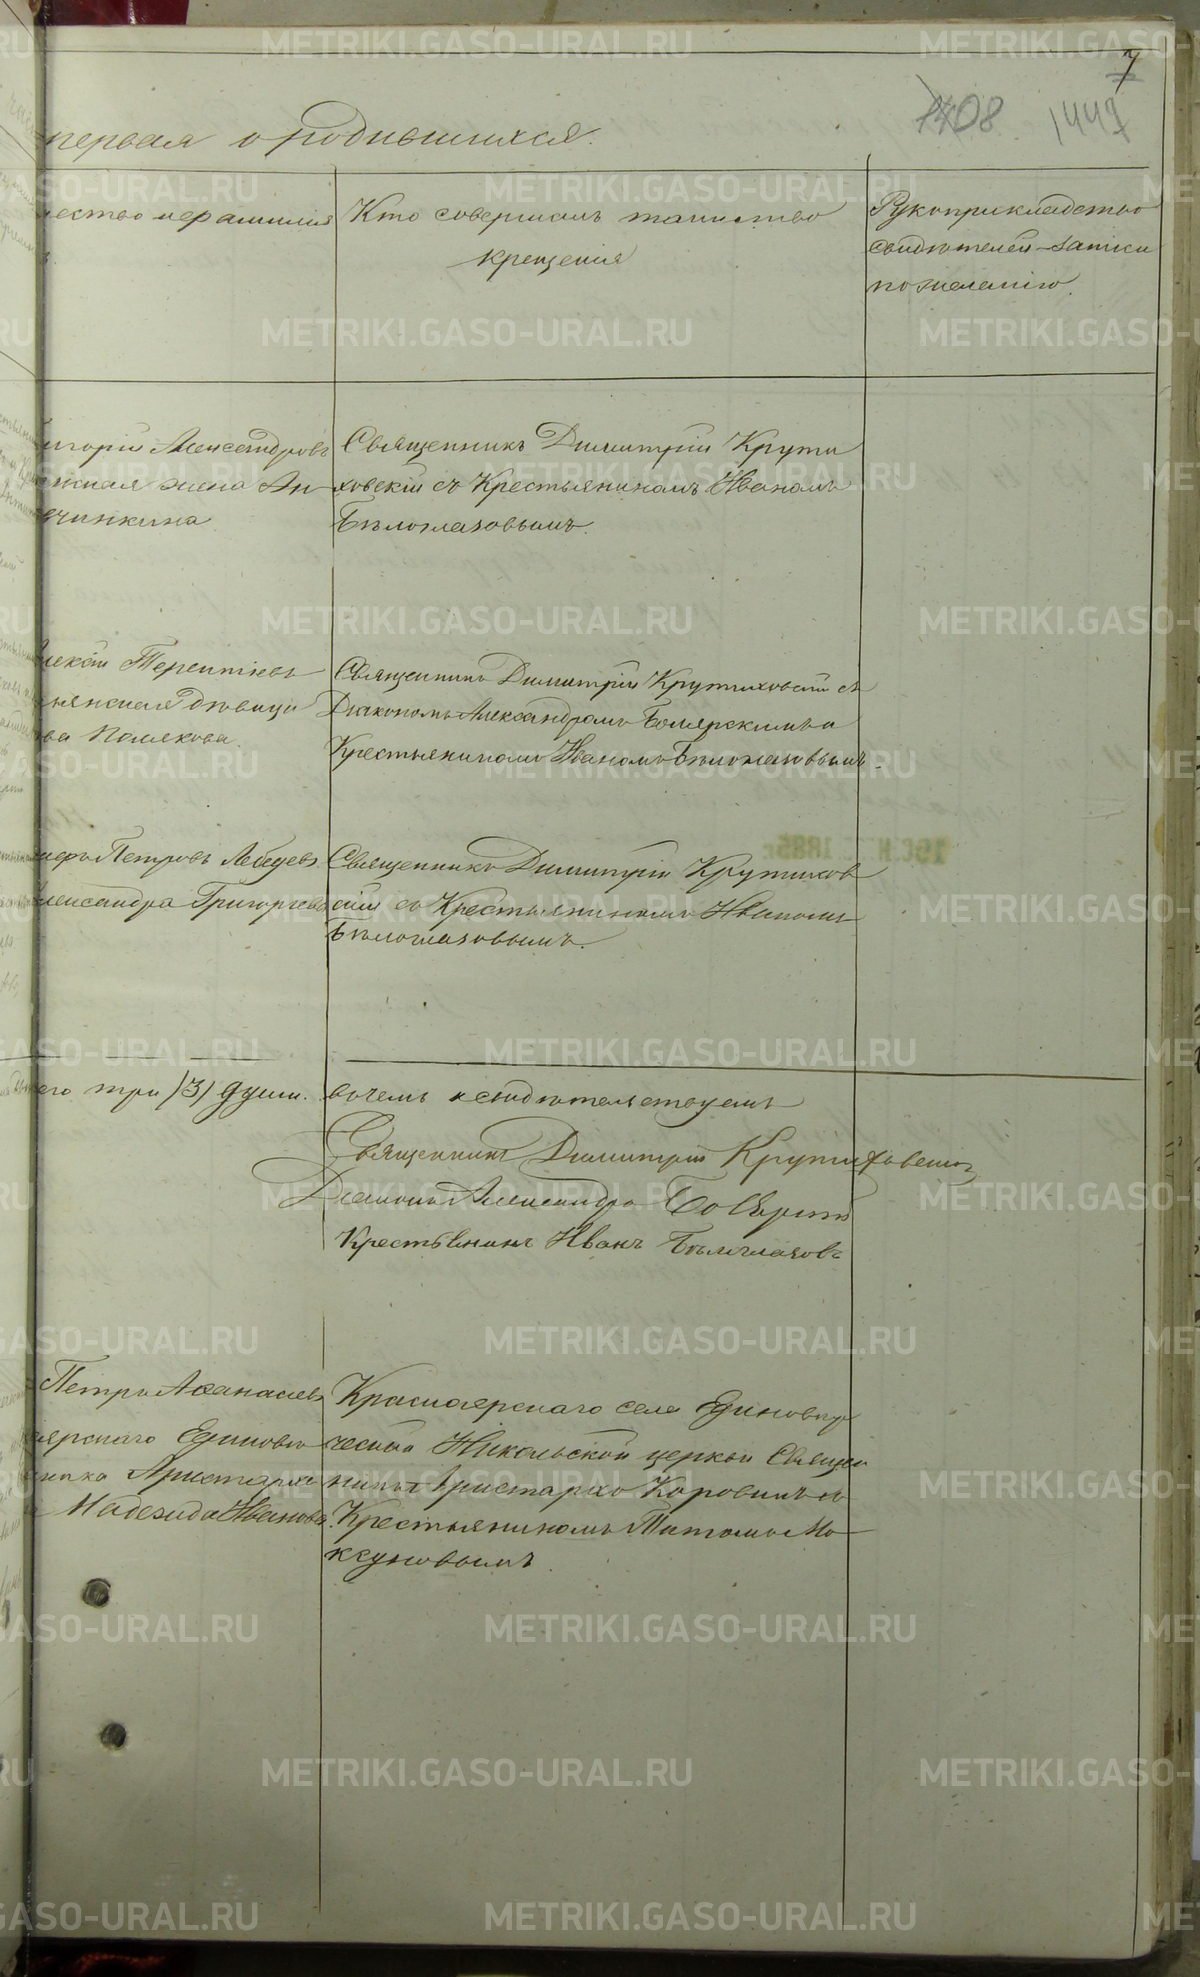 7
1408 1447
первая о родившихся.
чество и фамилия
Кто совершалъ таинство
крещенія
Рукоприкладство
свидѣтелей записи
по желанію.
игорій Александровъ
жена Ан
чинкина
Священникъ Димитрій Крути
ховскій съ Крестьяниномъ Иваномъ
Бѣлоглазовымъ.
лексій Терентіевъ
янская дѣвица
ва Полякова.
Священникъ Димитрій Крутиховскій съ
Діакономъ Александромъ Боярскимъ и
Крестьяниномъ Иваномъ Бѣлоглазовымъ.
Петровъ Лебедевъ
лександра Григорьева
Священникъ Димитрій Крутихов
скій съ Крестьяниномъ Иваномъ
Бѣлоглазовымъ.
его три /3/ души.
въ чемъ и свидѣтельствуемъ
Священникъ Димитрій Крутиховскій
Діаконъ Александръ Боярскій
Крестьянинъ Иванъ Бѣлоглазовъ
Петръ Аѳанасьевъ
ярскаго Единовѣр
ника Аристарха
Надежда Иванова.
Красноярскаго села Единовѣр
ческой Никольской церкви Священ
никъ Аристархъ Коровинъ съ
Крестьяниномъ Титомъ Мо
ксуновымъ.
METRIKI.GASO-URAL.RU